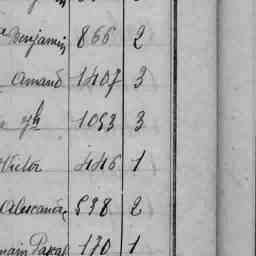 Benjamin 866 2
Amand 1407 3
Jh 1093 3
Victor 446 1
Alexandre 538 2
main Pascal 170 1